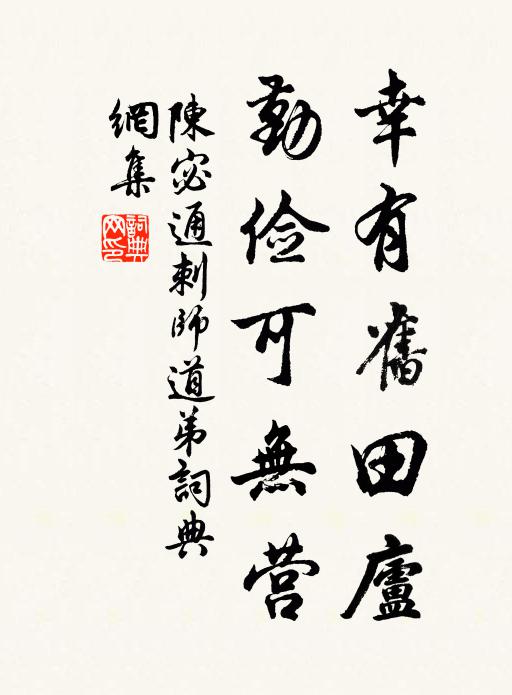 幸有舊田廬
勤俭可無营
陳宓通刺師道弟詞典
網集
詞典
网印